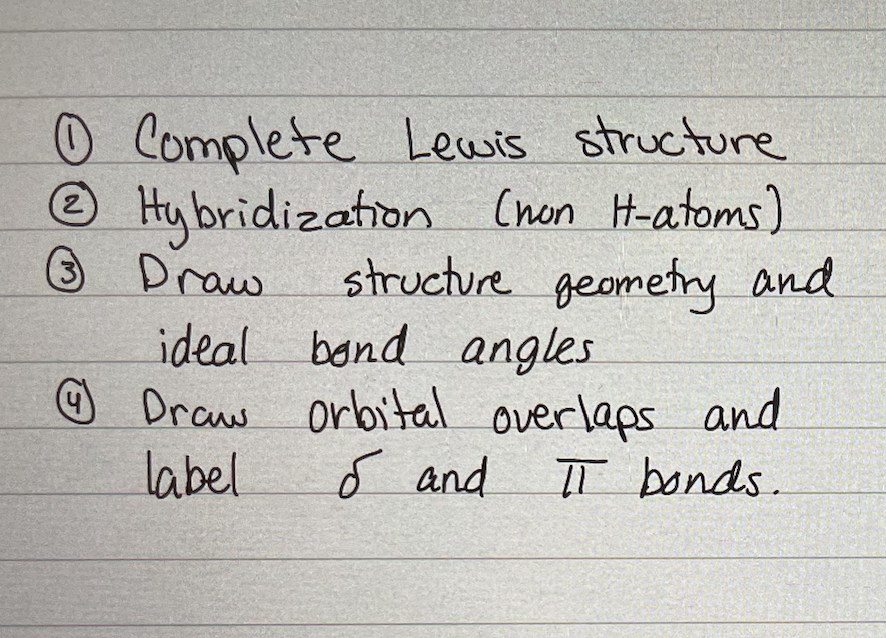 ① Complete Lewis structure
② Hybridization (non H-atoms)
③ Draw structure geometry and
ideal bond angles
④ Draw orbital overlaps and
label δ and π bonds.